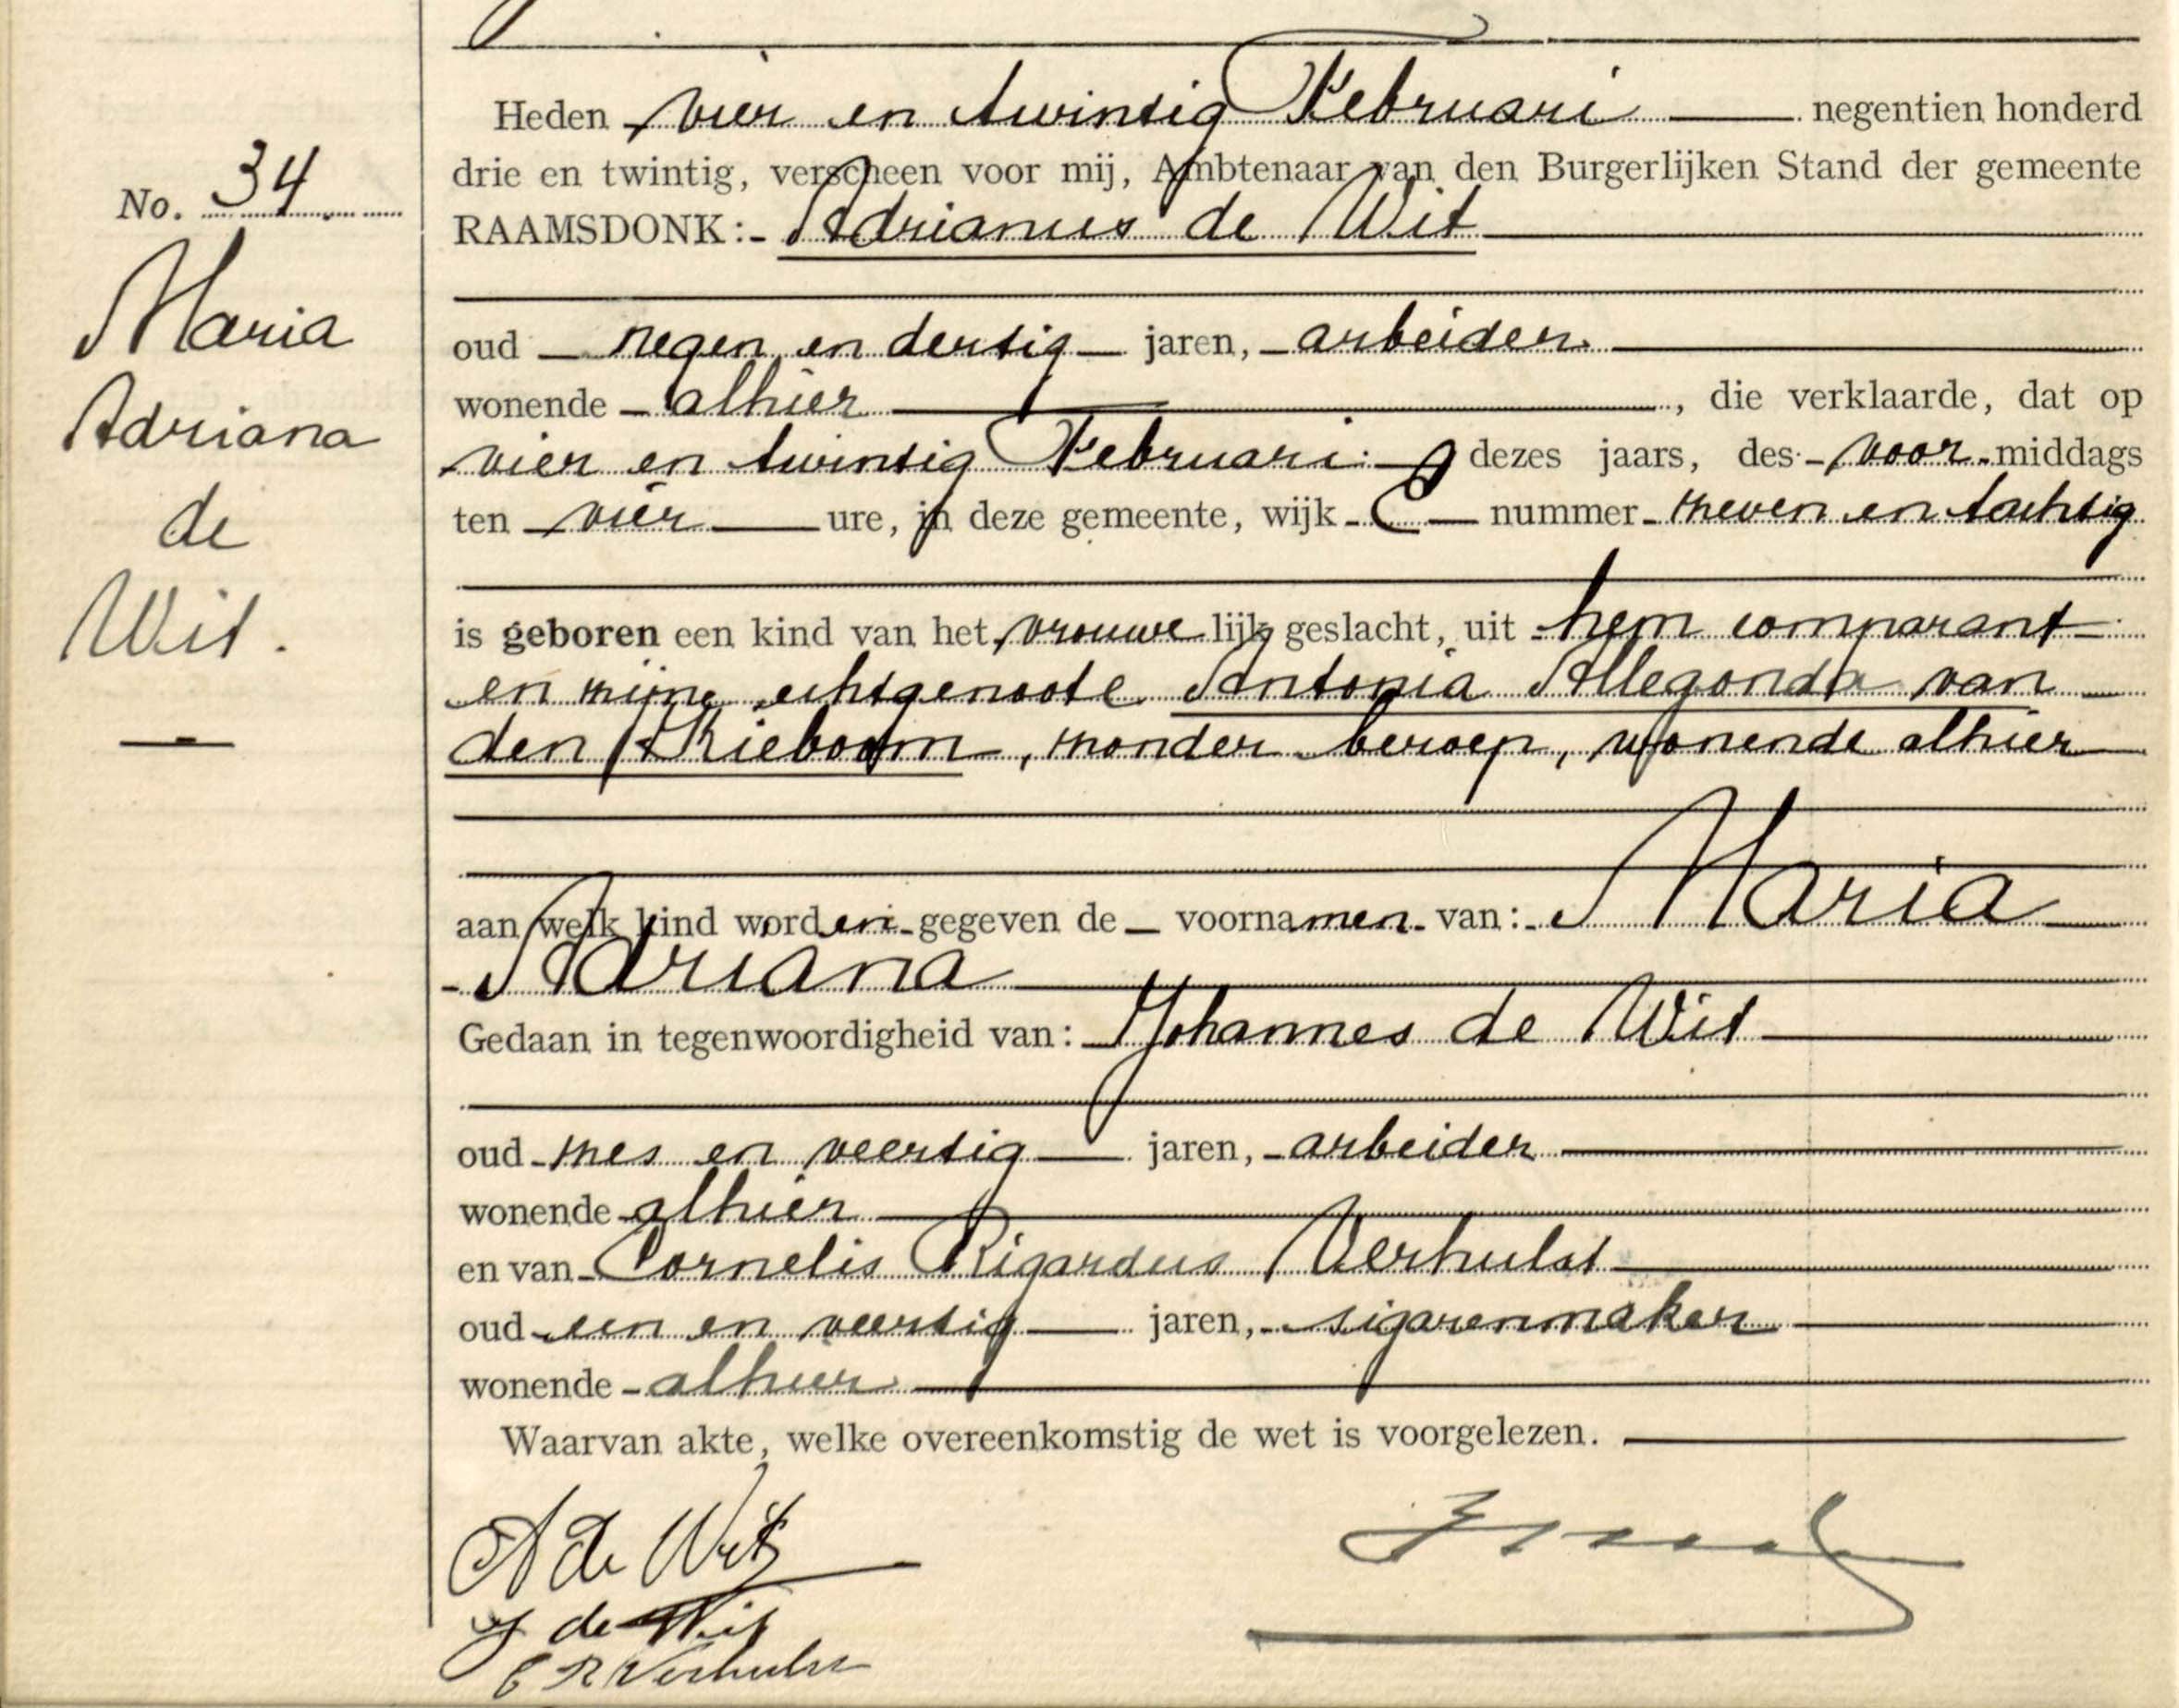 No. 34
Maria
Adriana
de
Wit.
Heden vier en twintig Februari negentien honderd
drie en twintig, verscheen voor mij, Ambtenaar van den Burgerlijken Stand der gemeente
RAAMSDONK:- Adrianus de Wit
oud negen en dertig jaren, arbeider
wonende alhier, die verklaarde, dat op
vier en twintig Februari dezes jaars, des voor-middags
ten vier ure, in deze gemeente, wijk C nummer zeven en tachtig
is geboren een kind van het vrouwelijk geslacht, uit hem comparant
en zijne echtgenoote Antonia Allegonda van
den Kieboom, zonder beroep, wonende alhier
aan welk kind worden gegeven de voornamen van: Maria
Adriana
Gedaan in tegenwoordigheid van: Johannes de Wit
oud zes en veertig jaren, arbeider
wonende alhier
en van Cornelis Rigardus Verhulst
oud een en veertig jaren, sigarenmaker
wonende alhier
Waarvan akte, welke overeenkomstig de wet is voorgelezen.
A de Wit
J de Wit
C R Verhulst